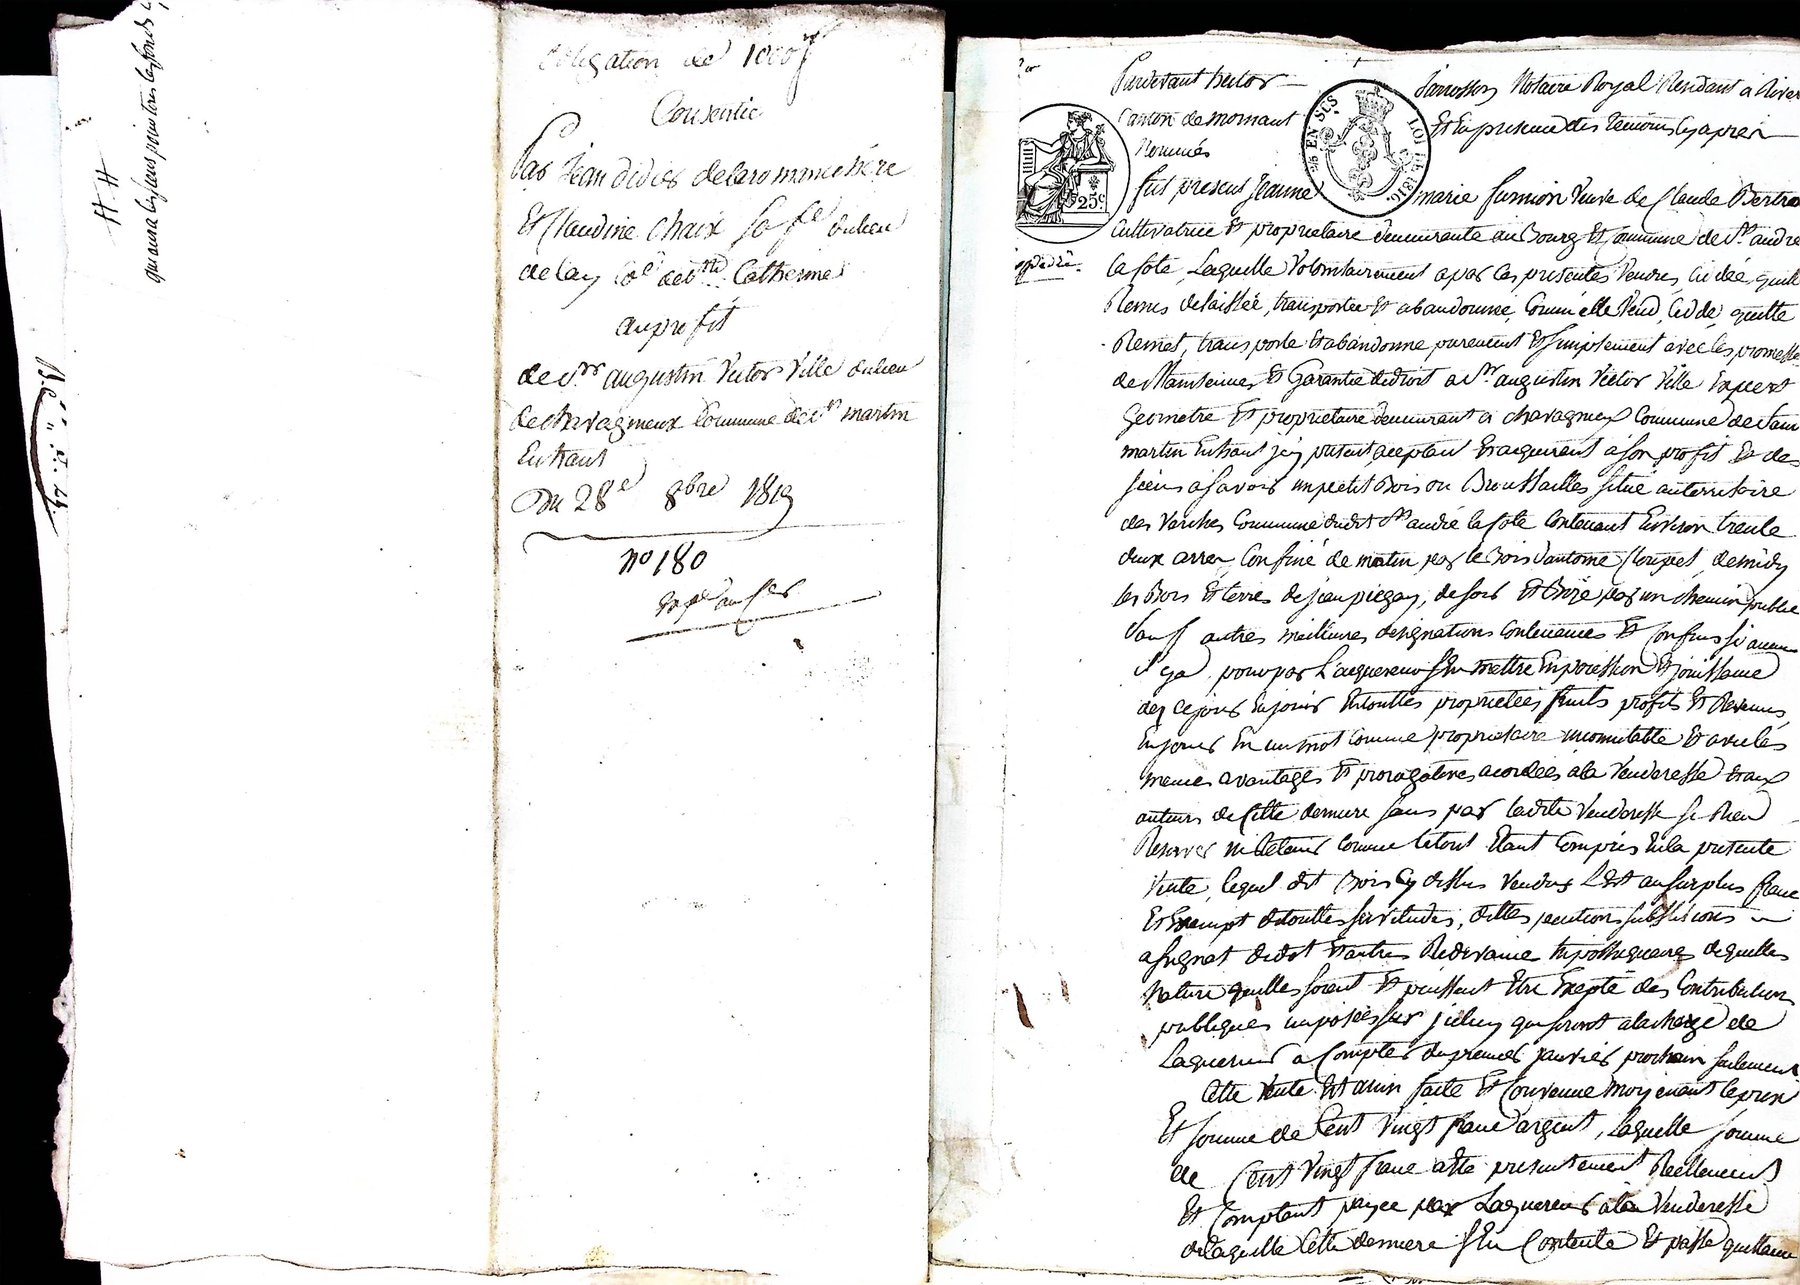 obligation de 1000 f
Consentie
Par jean didier delaromanchere
Et Claudine Chaix sa fe dulieu
delay Coe de ste Catherine
au profit
de sr augustin Victor Ville dulieu
dechavagneux Commune de st martin
En haut
Du 28e 8bre 1819
no 180
qui aura les siens pour tous les fonds
H-H
Pardevant hector
notaire Royal Residant a River
Canton de mornant
Et En presence des temoins Cyapres
Nommés
25 EN SUS
LOI DE 1816
25c
fut presente Jeanne
marie fumion Veuve de Claude Bertra
Cultivatrice Et proprietaire demeurante au Bourg Et Commune de st andre
la Cote, Laquelle Volontairement a par Ces presentes Vendue, Cedée, quitté
Remis delaissée, transportée Et abandonnée, Comme elle Vend, Cede, quitte
Remet, transporte Et abandonne purement Et Simplement avec les promesse
de Maintenues Et Garantie de droit a sr augustin Victor Ville Expert
Geometre Et proprietaire demeurant a chavagneux Commune de Sain
martin En haut jcy present, aceptant Et aquerent a son profit Et des
siens a Savoir un petit Bois ou Broussailles situé au territoire
des Commune dudit st andré la Cote Contenant Environ trente
deux arres, Confiné de matin par le Bois d'antoine, de midy
les Bois Et terres de jean, de soir Et Bize par un chemin public
Sauf autres meilleures designations Contenances Et Confins si aucun
il y a, pour par L'aquereur s'En mettre En possession Et jouissance
dez Ce jour En jouir En touttes proprietées fruits profits Et Revenus
En jouir En un mot Comme proprietaire incomutable Et avec les
memes avantages Et prorogatives acordées a la Venderesse Et aux
auteurs de Cette derniere sans par ladite Venderesse se Rien
Reserver ni Retenir Comme le tout Etant Compris En la presente
Vente, lequel dit Bois Cy dessus Vendu Est au surplus franc
Et Exempt de touttes servitudes, dettes, pentions
de dot Et autres Redevance hipothequaires de quelles
Nature quelles soient Et puissent Etre Excepté des Contributions
publiques imposées sur jceluy qui seront a la charge de
Laquereur a Compter du premier janvier prochain seulement
Cette Vente Est ainsi faite Et Convenue moyenant le prix
Et somme de Cent Vingt franc argent, Laquelle somme
de Cent Vingt franc a Eté presentement Reellement
Et Comptant payée par Laquereur a la Venderesse
de laquelle Cette derniere s'En Contente Et passe quittance